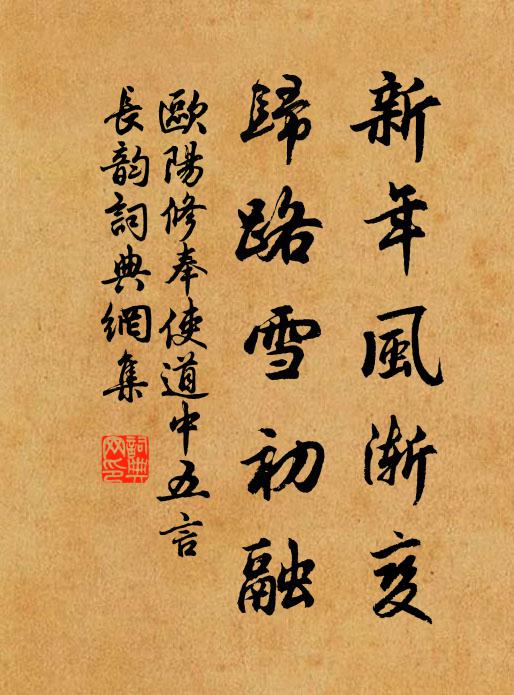 新年風漸變
歸路雪初融
歐陽修奉使道中五言
長韵詞典網集
詞典网印